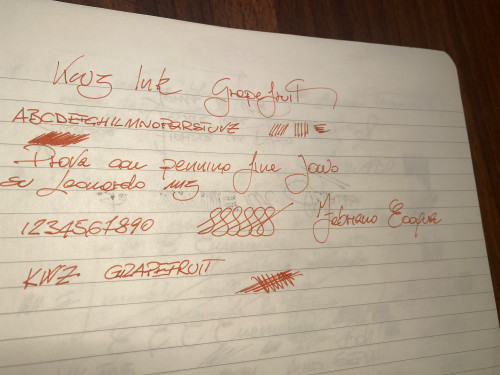 Kwz Ink Grapefruit
ABCDEFGHILMNOPQRSTUVZ
Prova con pennino fine Jowo
su Leonardo mz
1234561890 Fabriano Ecoqua
KWZ GRAPEFRUIT